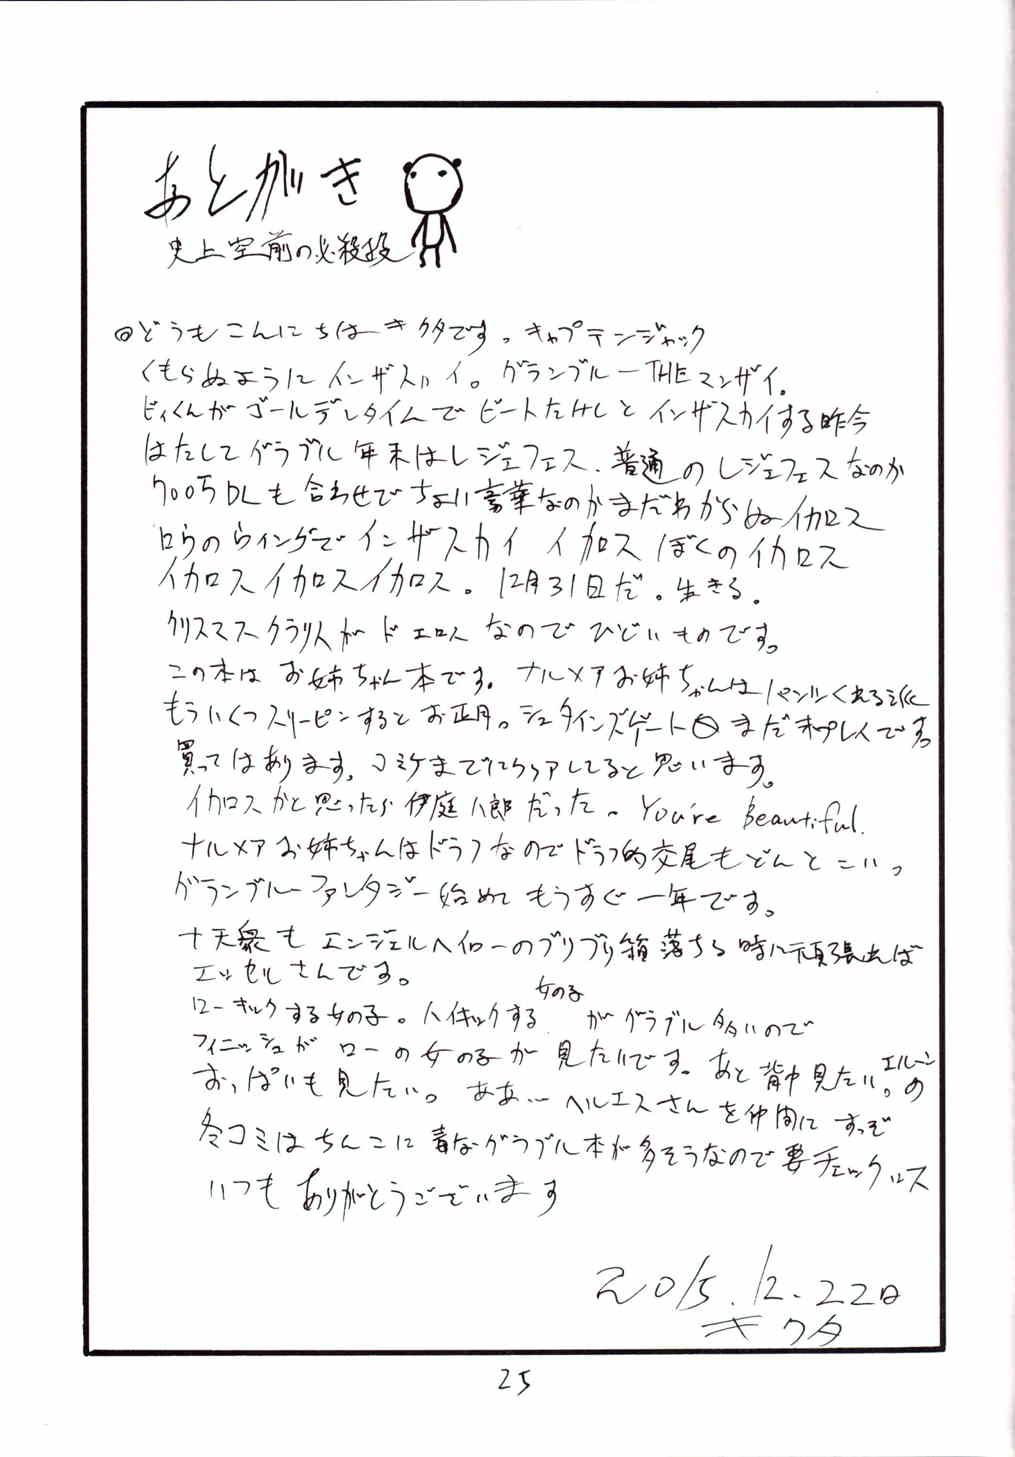 あとがき
史上空前の必殺技
◎どうもこんにちはーキクタです。キャプテンジャック
くもらぬようにインザスカイ。グランブルーTHEマンザイ。
ビィくんがゴールデンタイムでビートたけしとインザスカイする昨今
はたしてグラブル年末はレジェフェス、普通のレジェフェスなのか
700万DLも合わせてちょい豪華なのかまだわからぬイカロス
ロウのウィングでインザスカイ イカロス ぼくのイカロス
イカロスイカロスイカロス。12月31日だ。生きる。
クリスマスクラリスがドエロスなのでひどいものです。
この本はお姉ちゃん本です。ナルメアお姉ちゃんは くれる派
もういくつスリーピンするとお正月。シュタインズゲート0まだ未プレイです。
買ってはあります。コミケまでにクリアしてると思います。
イカロスかと思ったら伊庭八郎だった。You're Beautiful.
ナルメアお姉ちゃんはドラフなのでドラフ的交尾もどんとこいっ
グランブルーファンタジー始めてもうすぐ一年です。
十天衆もエンジェルヘイローのブリブリ箱落ちる時に頑張れば
エッセルさんです。
ローキックする女の子。ハイキックする女の子がグラブル多いので
フィニッシュがローの女の子が見たいです。あと背中見たい。エルーンの
おっぱいも見たい。ああ…ヘルエスさんを仲間にすっぞ
冬コミはちんこに毒なグラブル本が多そうなので要チェックッス
いつもありがとうございます
2015.12.22日
キクタ
25